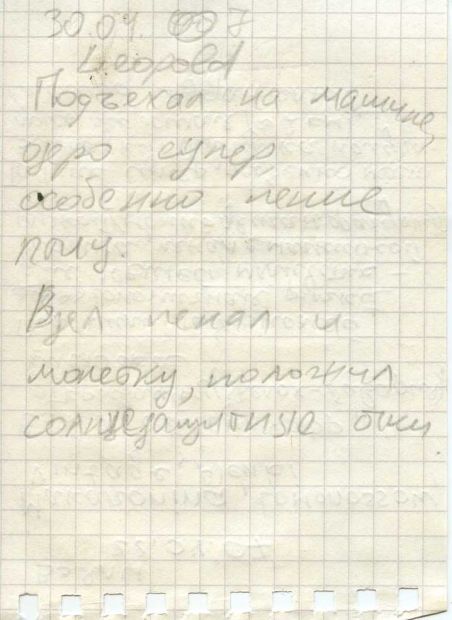 30.04. 007
Leopold
Подъехал на машине,
озеро супер
особенно пение
Взел пенал и
монетку, положил
солнцезащитные очки